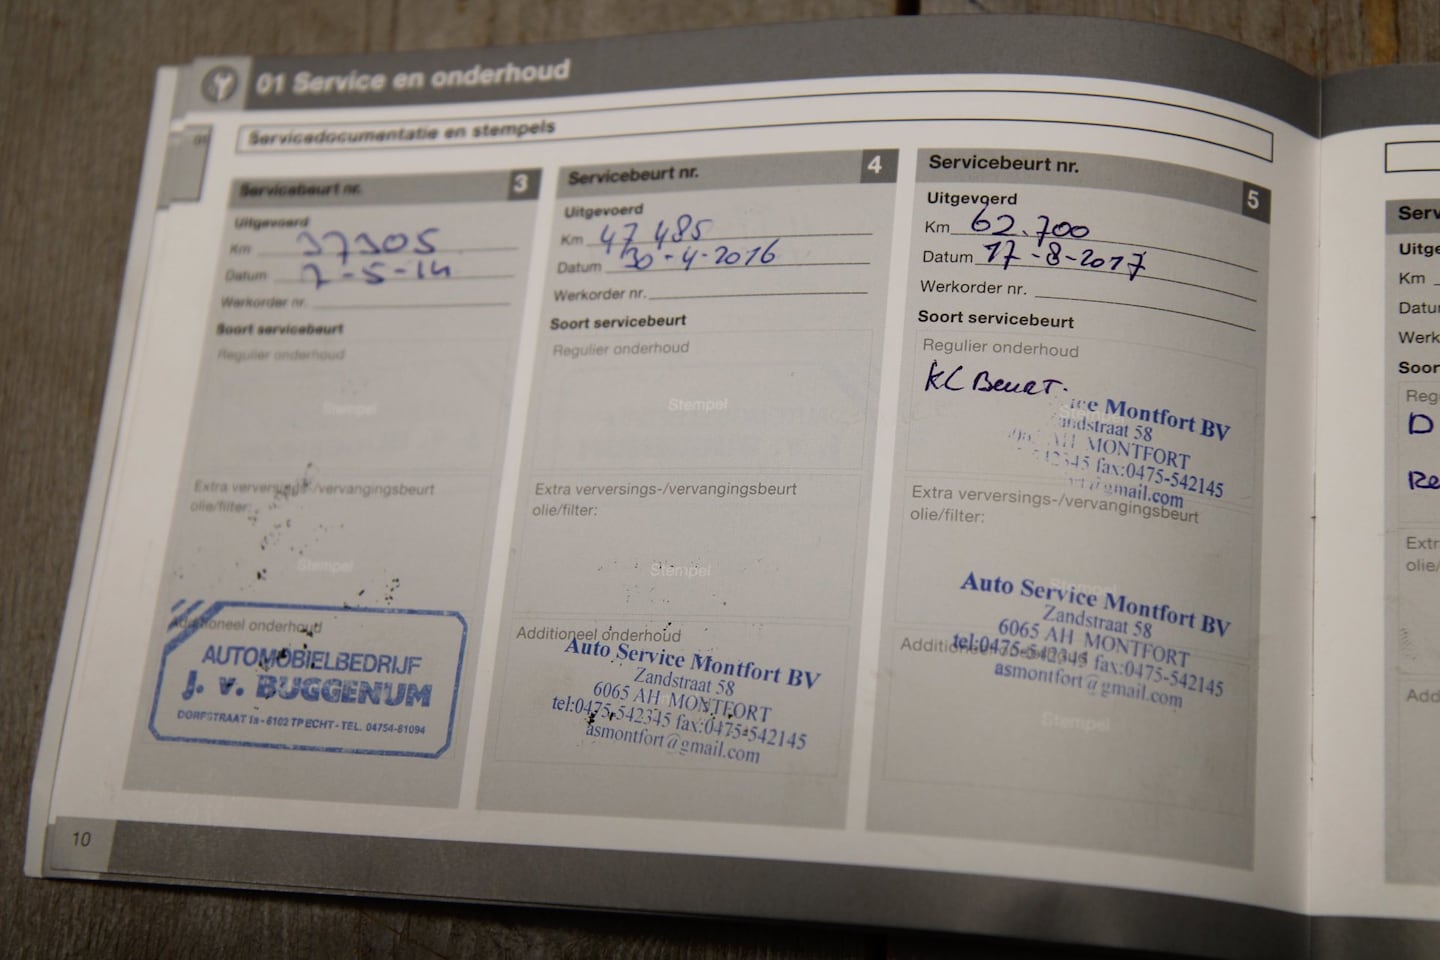 01 Service en onderhoud
Servicedocumentatie en stempels
Servicebeurt nr. 3
Uitgevoerd
Km 37305
Datum 7-5-14
Werkorder nr.
Soort servicebeurt
Regulier onderhoud
Stempel
Extra verversings-/vervangingsbeurt
olie/filter:
Stempel
Additioneel onderhoud
AUTOMOBIELBEDRIJF
J. v. BUGGENUM
DORPSTRAAT 1a - 6102 TP ECHT - TEL. 04754-81094
Servicebeurt nr. 4
Uitgevoerd
Km 47485
Datum 30-4-2016
Werkorder nr.
Soort servicebeurt
Regulier onderhoud
Stempel
Extra verversings-/vervangingsbeurt
olie/filter:
Stempel
Additioneel onderhoud
Auto Service Montfort BV
Zandstraat 58
6065 AH MONTFORT
tel:0475-542345 fax:0475-542145
asmontfort@gmail.com
Servicebeurt nr. 5
Uitgevoerd
Km 62.700
Datum 17-8-2017
Werkorder nr.
Soort servicebeurt
Regulier onderhoud
KL Beurt.
Stempel
ice Montfort BV
andstraat 58
AH MONTFORT
42345 fax:0475-542145
@gmail.com
Extra verversings-/vervangingsbeurt
olie/filter:
Stempel
Auto Service Montfort BV
Zandstraat 58
6065 AH MONTFORT
Additioneel
tel:0475-542345 fax:0475-542145
asmontfort@gmail.com
Stempel
10
Serv
Uitge
Km
Datu
Werk
Soor
Reg
D
Re
Extr
olie/
Add